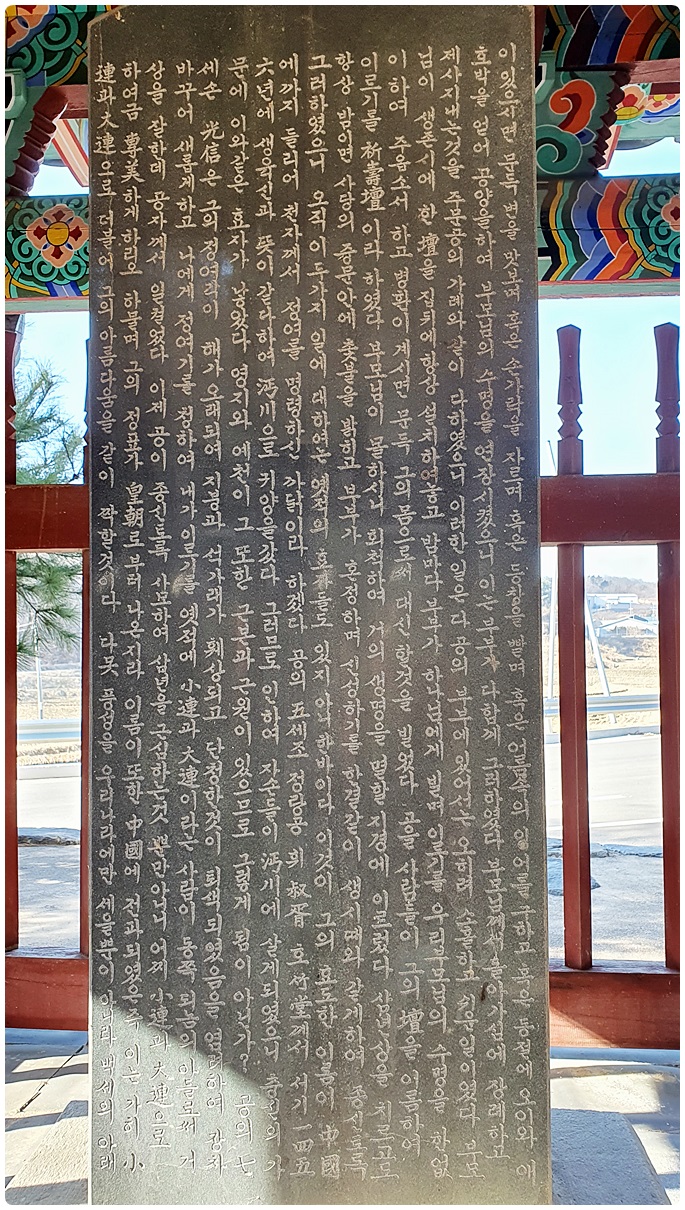 이 있으시면 문득 변을 맛보며 혹은 손가락을 자르며 혹은 등창을 빨며 혹은 얼음속의 잉어를 구하고 혹은 동절에 오이와 애
호박을 얻어 공양을하여 부모님의 수명을 연장시켰으니 이는 부부가 다함께 그리하였다 부모님께서 돌아가심에 장례하고
제사지내는것을 주문공의 가례와같이 다하였으니 이러한 일은 다 공의 부부에 있어서는 오히려 소홀하고 쉬운일이였다 부모
님이 생존시에 한 壇을 집뒤에 항상 설치하여놓고 밤마다 부부가 하나님에게 빌며 이르기를 우리부모님의 수명을 한없
이 하여 주옵소서 하고 병환이 계시면 문득 그의 몸으로써 대신할것을 빌었다 고을 사람들이 그의 壇을 이름하여
이르기를 祈壽壇 이라 하였다 부모님이 몰하시니 회척하여 거의 생명을 멸할 지경에 이르렀다 삼년상을 치르고도
항상 밤이면 사당의 중문안에 촛불을 밝히고 부부가 혼정하며 신성하기를 한결같이 생시때와 같게하여 종신토록
그러하였으니 오직 이 두가지 일에 대하여는 옛적의 효자들도 있지 아니한바이다 이것이 그의 효도한 이름이 中國
에까지 들리어 천자께서 정여를 명령하신 까닭이라 하겠다 공의 五세조 정랑공 휘 叔胥 호 竹堂께서 서기 一四五
六년에 생육신과 뜻이 같다하여 沔川으로 귀양을갔다 그러므로 인하여 자손들이 沔川에 살게되였으니 충신의 가
문에 이와같은 효자가 낳왔다 영지와 예천이 그 또한 근본과 근원이 있으므로 그렇게 됨이 아닌가? 공의 七
세손 光信은 그의 정여각이 해가 오래되여 지붕과 석가래가 훼상되고 단청한것이 퇴색되였음을 염려하여 장차
바꾸어 새롭게하고 나에게 정여기를 청하여 내가 이르기를 옛적에 小連과 大連이라는 사람이 동쪽 되놈의 아들로써 거
상을 잘한데 공자께서 일컬었다 이제 공이 종신토록 사모하여 삼년을 근심하는것 뿐만아니니 어찌 小連과 大連으로
하여금 專美하게 하리오 하물며 그의 정표가 皇朝로부터 나온지라 이름이 또한 中國에 전파되였은즉 이는 가히 小
連과 大連으로 더불어 그의 아름다움을 같이 짝할것이다 다못 풍성을 우리나라에만 세울뿐이 아니라 백세의 아래